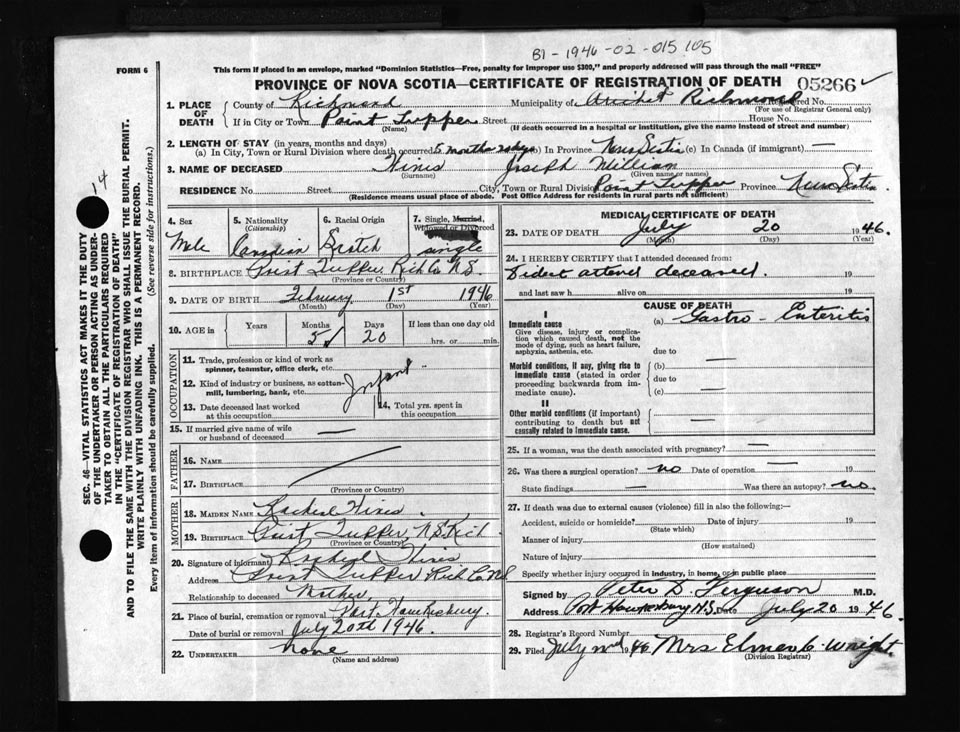 B1-1946-02-015105
FORM 6
This form if placed in an envelope, marked "Dominion Statistics—Free, penalty for improper use $300," and properly addressed will pass through the mail "FREE"
PROVINCE OF NOVA SCOTIA—CERTIFICATE OF REGISTRATION OF DEATH 05266
1. PLACE OF DEATH County of Richmond Municipality of Richmond Registered No.
(For use of Registrar General only)
If in City or Town Point Tupper Street House No.
(Name) (If death occurred in a hospital or institution, give the name instead of street and number)
2. LENGTH OF STAY (in years, months and days)
(a) In City, Town or Rural Division where death occurred 5 months 20 days (b) In Province Nova Scotia (c) In Canada (if immigrant) —
3. NAME OF DECEASED Joseph William
(Surname) (Given name or names)
RESIDENCE No. Street City, Town or Rural Division Point Tupper Province Nova Scotia.
(Residence means usual place of abode. Post Office Address for residents in rural parts not sufficient)
4. Sex 5. Nationality (Citizenship) 6. Racial Origin 7. Single, Married, Widowed or Divorced
Male Canadian Scotch single
8. BIRTHPLACE Point Tupper Rich Co N.S.
(Province or Country)
9. DATE OF BIRTH February 1st 1946
(Month) (Day) (Year)
10. AGE in Years Months Days If less than one day old
5 20 hrs. or min.
OCCUPATION
11. Trade, profession or kind of work as spinner, teamster, office clerk, etc.
12. Kind of industry or business, as cotton-mill, lumbering, bank, etc. Infant
13. Date deceased last worked at this occupation 14. Total yrs. spent in this occupation
15. If married give name of wife or husband of deceased —
FATHER
16. NAME
17. BIRTHPLACE
(Province or Country)
MOTHER
18. MAIDEN NAME Rachael
19. BIRTHPLACE Point Tupper N.S. Rich
(Province or Country)
20. Signature of informant Rachael
Address Point Tupper Rich Co NS
Relationship to deceased Mother
21. Place of burial, cremation or removal Port Hawkesbury.
Date of burial or removal July 20th 1946.
22. UNDERTAKER None
(Name and address)
MEDICAL CERTIFICATE OF DEATH
23. DATE OF DEATH July 20 1946
(Month) (Day) (Year)
24. I HEREBY CERTIFY that I attended deceased from:
I didnt attend deceased. 19
and last saw h alive on 19
CAUSE OF DEATH
I
Immediate cause (a) Gastro-Enteritis
Give disease, injury or complication which caused death, not the mode of dying, such as heart failure, asphyxia, asthenia, etc.
due to —
Morbid conditions, if any, giving rise to immediate cause (stated in order proceeding backwards from immediate cause).
(b) —
due to
(c) —
II
Other morbid conditions (if important) contributing to death but not causally related to immediate cause. —
25. If a woman, was the death associated with pregnancy? —
26. Was there a surgical operation? no Date of operation — 19
State findings — Was there an autopsy? no.
27. If death was due to external causes (violence) fill in also the following:—
Accident, suicide or homicide? Date of injury 19
(State which)
Manner of injury
(How sustained)
Nature of injury
Specify whether injury occurred in industry, in home, or in public place
Signed by Peter D. Ferguson M.D.
Address Port Hawkesbury N.S. Date July 20 1946.
28. Registrar's Record Number
29. Filed July 1946 Mrs Elmer C. Wright.
(Division Registrar)
14
SEC. 46—VITAL STATISTICS ACT MAKES IT THE DUTY
OF THE UNDERTAKER OR PERSON ACTING AS UNDER-
TAKER TO OBTAIN ALL THE PARTICULARS REQUIRED
IN THE "CERTIFICATE OF REGISTRATION OF DEATH"
AND TO FILE THE SAME WITH THE DIVISION REGISTRAR WHO SHALL ISSUE THE BURIAL PERMIT.
WRITE PLAINLY WITH UNFADING INK. THIS IS A PERMANENT RECORD.
Every item of information should be carefully supplied. (See reverse side for instructions.)